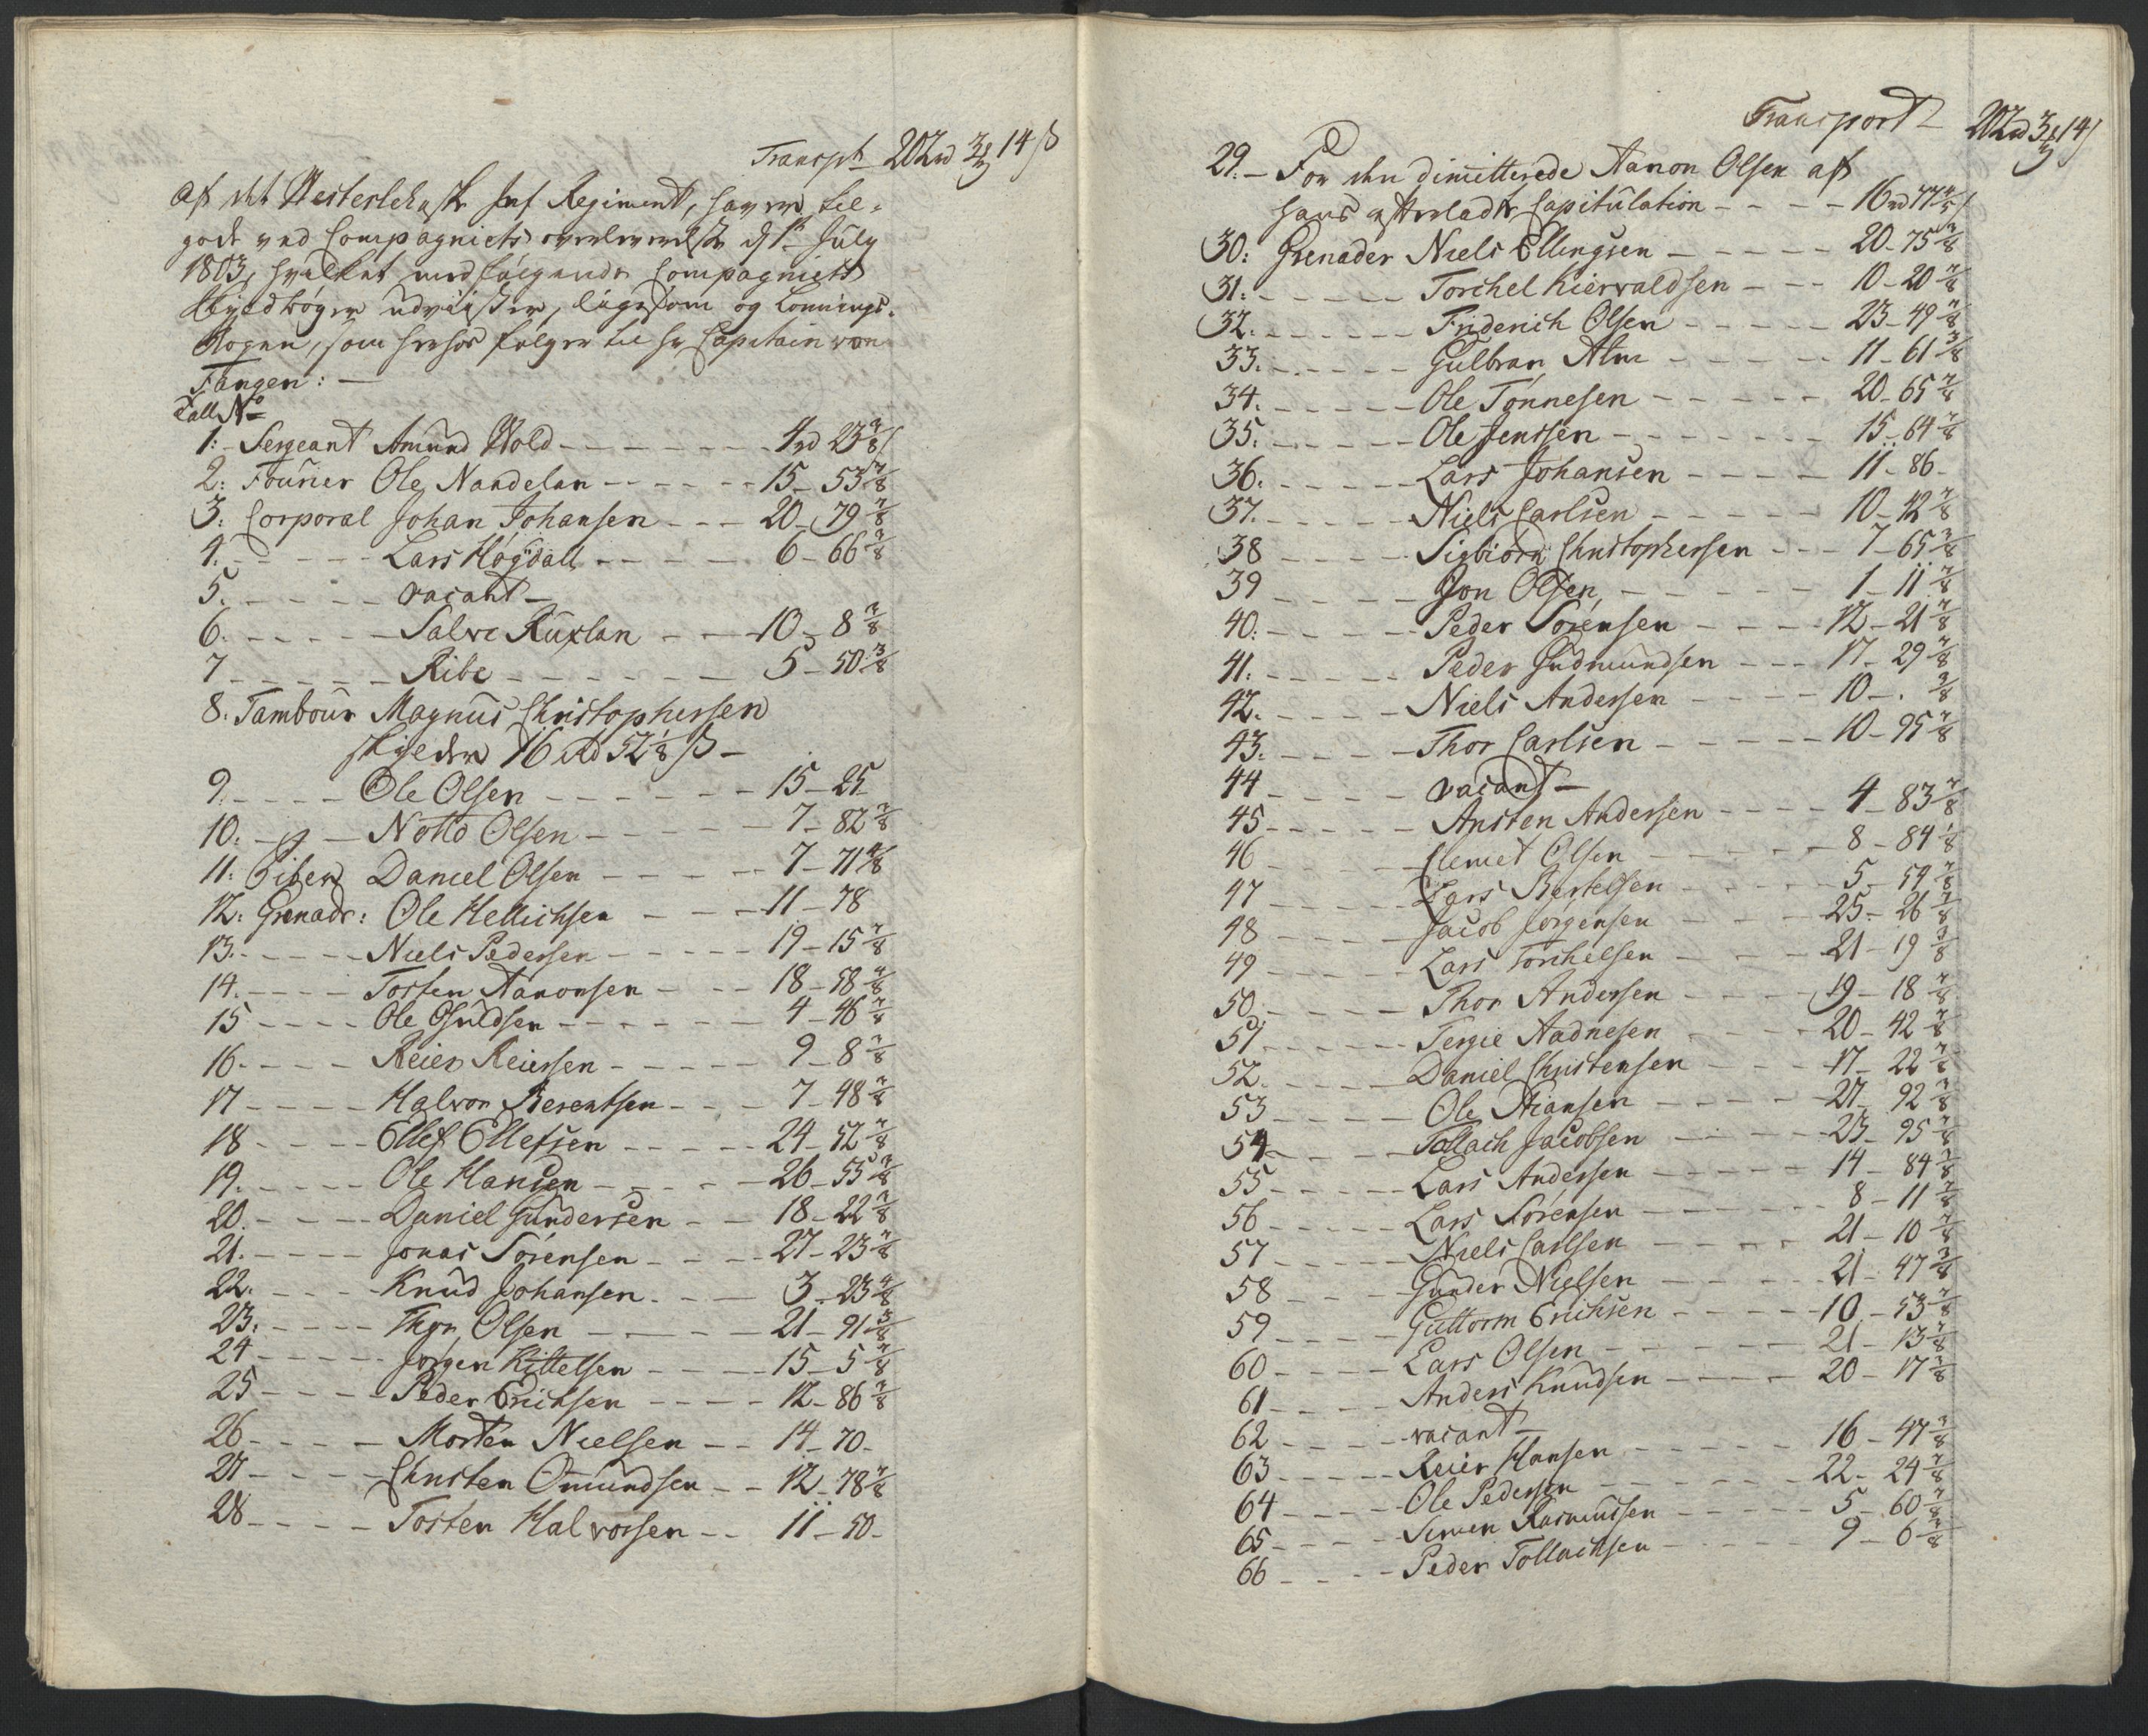 Transpt 202 rd 3 ℔ 14 ß
af det Westerlehnske Inf Regiment, haver til-
gode ved Compagniets overleverelse d 1ste July
1803, hvilket medfølgende Compagniets
skyldbøger udviiser, ligesom og Lønnings-
Bogen, som herhos følger til Hr Capitain von
Fangen: —
Tall No
1: - Sergeant Amund Wold - - - 4 rd 23 7/8 ß
2: Fourier Ole Nandelan - - - 15 - 53 7/8
3: Corporal Johan Johansen - - - 20 - 79 7/8
4. - - - Lars Høgdall - - - 6 - 66 7/8
5. - - - vacant -
6. - - - Salve Ruxlan - - - 10 - 8 7/8
7 - - - Ribe - - - 5 - 50 3/8
8. Tambour Magnus Christophersen
skylder 16 rd 52 1/8 ß -
9. - - - Ole Olsen - - - 15 - 25
10. - - - Notto Olsen - - - 7 - 82 7/8
11: Piber Daniel Olsen - - - 7 - 71 4/8
12: Grenadr: Ole Hellichsen - - - 11 - 78
13. - - - Niels Pedersen - - - 19 - 15 7/8
14. - - - Tosten Aanonsen - - - 18 - 58 7/8
15 - - - Ole Osuldsen - - - 4 - 46 7/8
16. - - - Reier Reiersen - - - 9 - 8 7/8
17 - - - Halvor Berentsen - - - 7 - 48 7/8
18 - - - Ellef Ellefsen - - - 24 - 52 7/8
19. - - - Ole Hansen - - - 26 - 55 7/8
20. - - - Daniel Gundersen - - 18 - 22 7/8
21. - - - Jonas Sørensen - - - 27 - 23 7/8
22. - - - Knud Johansen - - - 3 - 23 4/8
23. - - - Thor Olsen - - - 21 - 91 3/8
24 - - - Jørgen Kittelsen - - - 15 - 5 7/8
25 - - - Peder Erichsen - - - 12 - 86 7/8
26 - - - Morten Nielsen - - 14 - 70 -
27 - - - Christen Omundsen - - 12 - 78 7/8
28 - - - Tosten Halvorsen - - 11 - 50 -
Transport - 202 rd 3 ℔ 14 ß
29. - For den dimitterede Aanon Olsen af
hans efterladte Capitulation - - - 16 rd 77 4/8 ß
30: Grenader Niels Ellingsen - - - 20 - 75 7/8
31: - - - Torchel Kiervaldsen - - - 10 - 20 7/8
32. - - - Friderich Olsen - - - 23 - 49 7/8
33. - - - Gulbran Alm - - - 11 - 61 3/8
34. - - - Ole Tønnesen - - - 20 - 65 7/8
35. - - - Ole Jenssen - - - 15 - 64 7/8
36. - - - Lars Johansen - - - 11 - 86 -
37. - - - Niels Carlsen - - - 10 - 42 7/8
38 - - - Sigbiørn Christophersen - - - 7 - 65 7/8
39 - - - Jon Olsen - - - 1 - 11 7/8
40: - - - Peder Sørensen - - - 12 - 21 7/8
41. - - - Peder Gudmundsen - - - 17 - 29 7/8
42. - - - Niels Andersen - - - 10 - . 7/8
43. - - - Thor Carlsen - - - 10 - 95 7/8
44 - - - vacant -
45 - - - Ansten Andersen - - - 4 - 83 7/8
46 - - - Clemet Olsen - - - 8 - 84 1/8
47 - - - Lars Bertelsen - - - 5 - 54 7/8
48 - - - Jacob Jørgensen - - - 25 - 26 7/8
49 - - - Lars Torchelsen - - - 21 - 19 7/8
50. - - - Thor Andersen - - - 19 - 18 7/8
51 - - - Tergie Aadnesen - - - 20 - 42 7/8
52. - - - Daniel Christensen - - - 17 - 22 7/8
53 - - - Ole Stiansen - - - 27 - 92 7/8
54 - - - Tollach Jacobsen - - - 23 - 95 7/8
55 - - - Lars Andersen - - - 14 - 84 7/8
56 - - - Lars Sørensen - - - 8 - 11 7/8
57 - - - Niels Carlsen - - - 21 - 10 7/8
58 - - - Gunder Nielsen - - - 21 - 47 3/8
59 - - - Guttorm Erichsen - - - 10 - 53 7/8
60 - - - Lars Olsen - - - 21 - 13 7/8
61 - - - Anders Knudsen - - - 20 - 17 7/8
62 - - - vacant -
63 - - - Reier Hansen - - - 16 - 47 7/8
64 - - - Ole Pedersen - - - 22 - 24 7/8
65 - - - Simen Rasmussen - - - 5 - 60 7/8
66 - - - Peder Tollachsen - - - 9 - 6 7/8